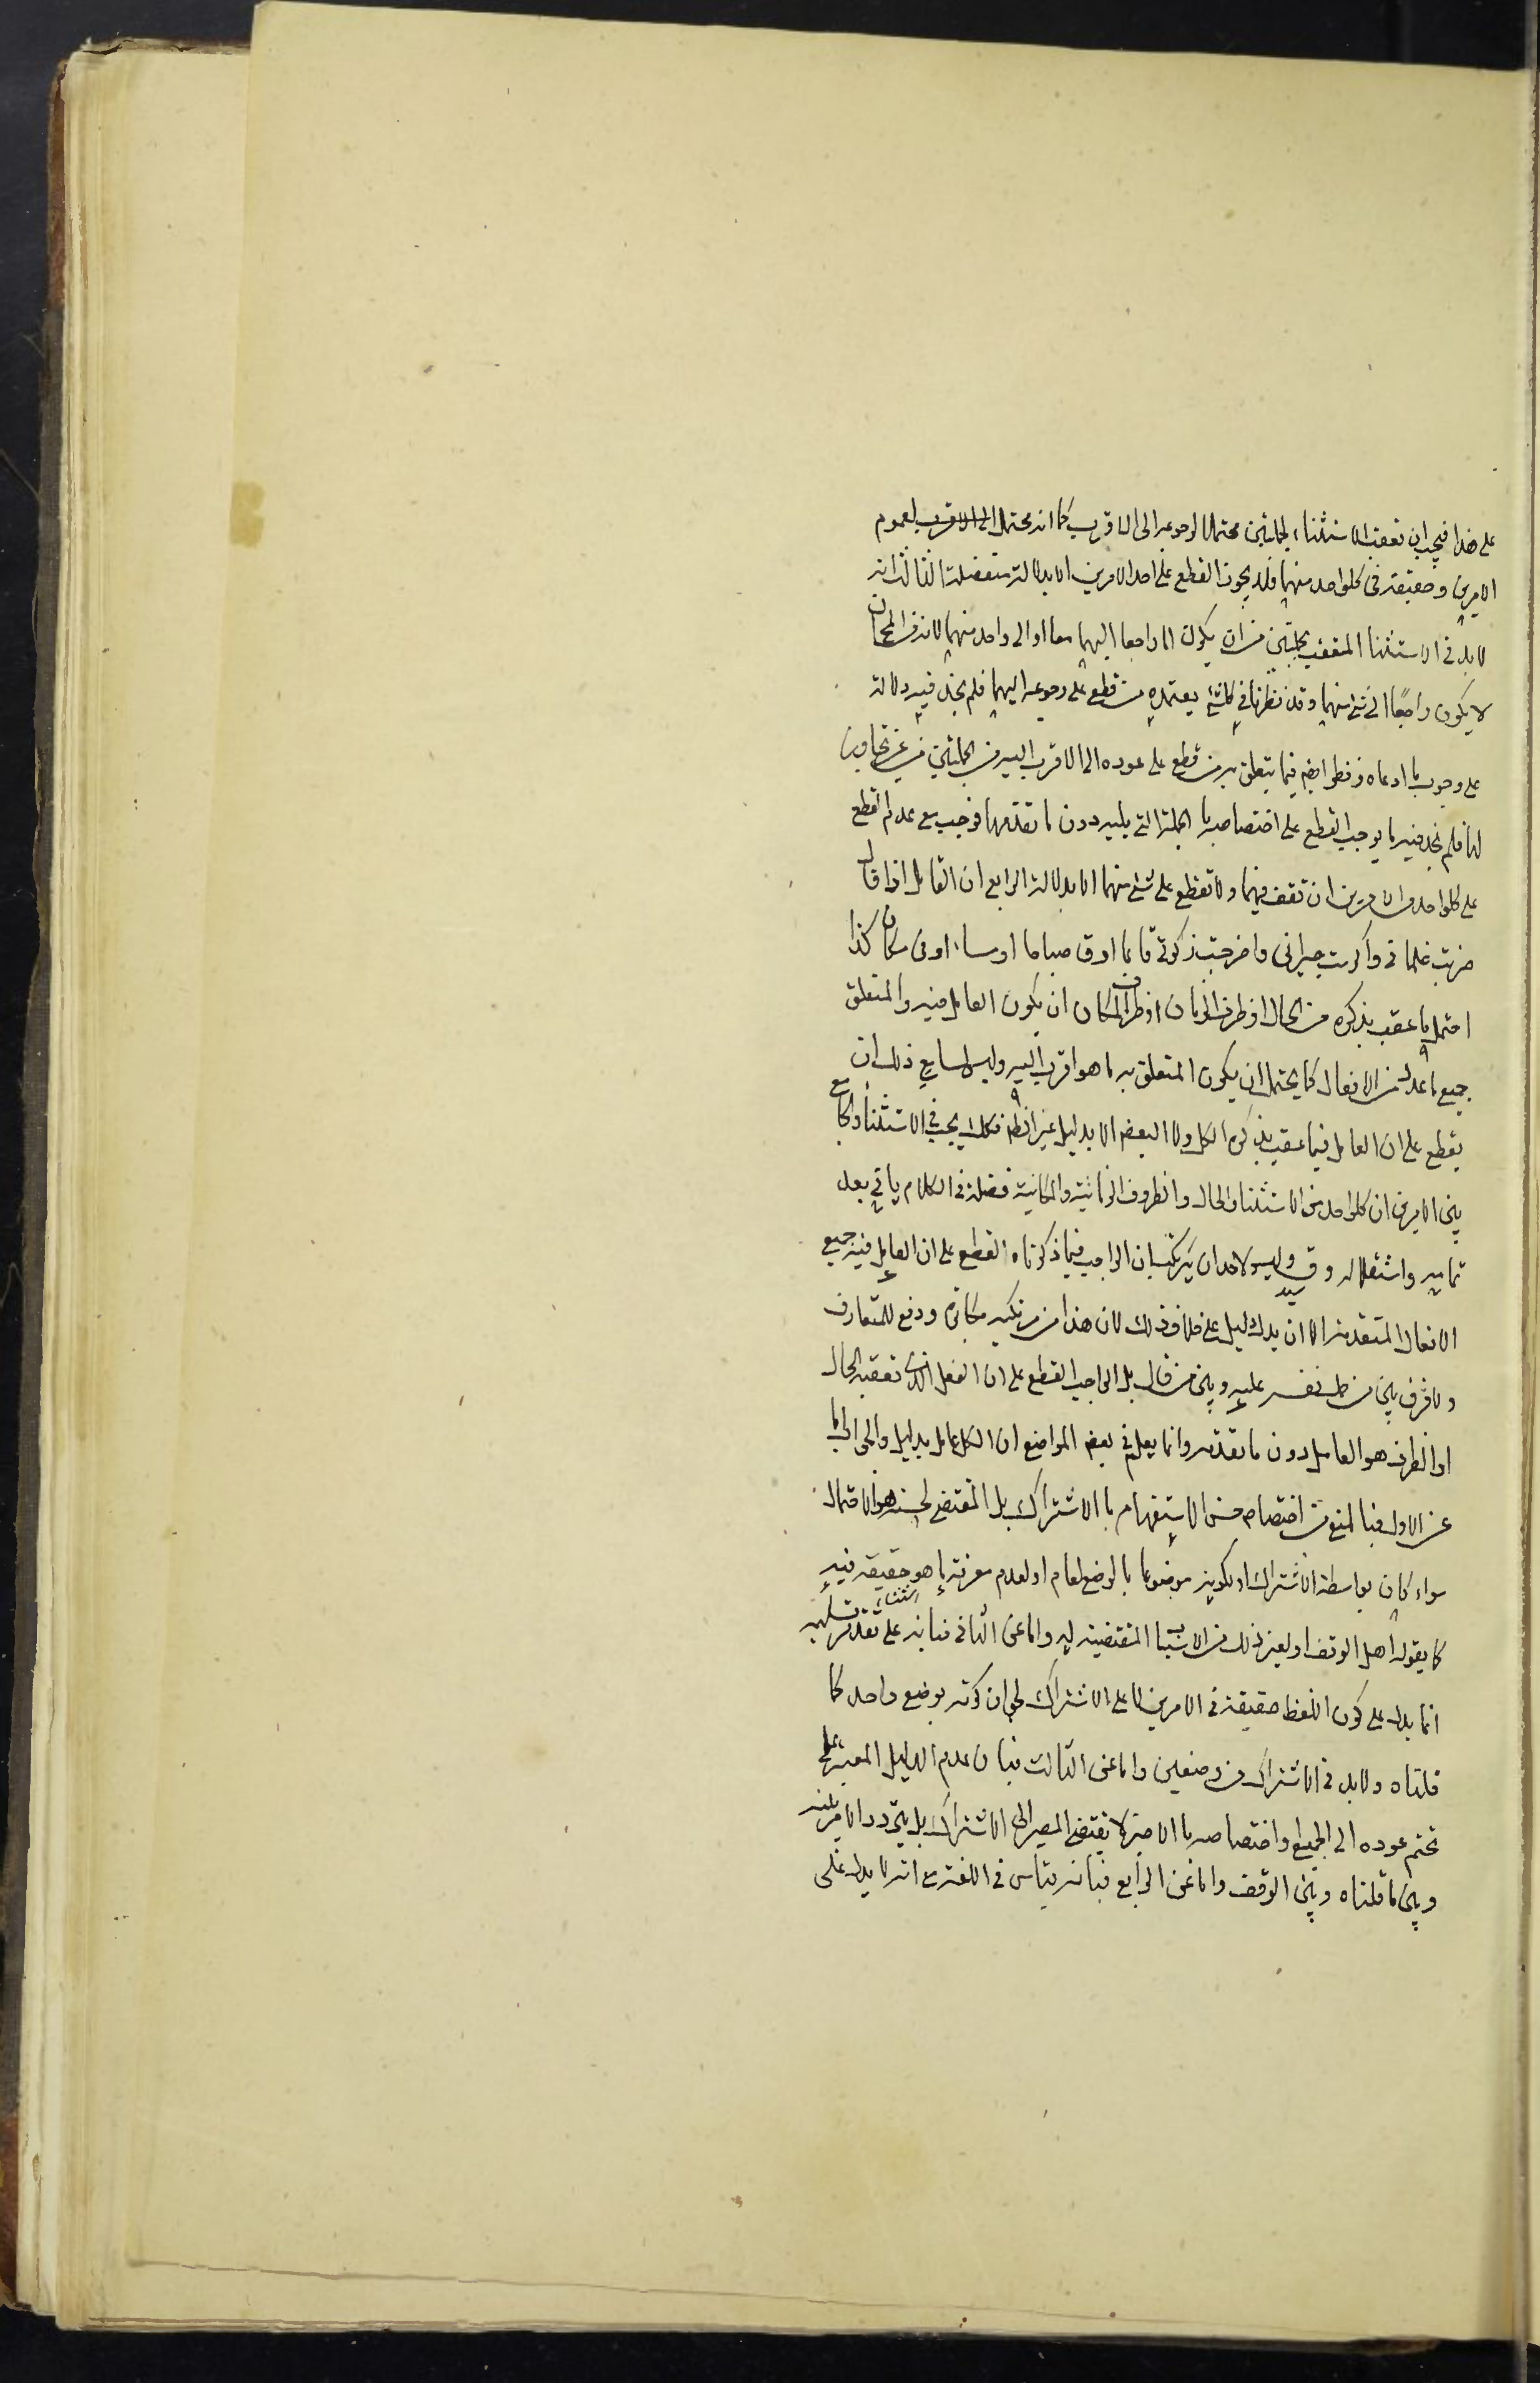 على هذا فيجب ان تعقب الاستثناء لجملتين محتملا لرجوعه الى الاقرب كما انه محتمل الى الاقرب لعموم
الامرين وحقيقة فى كلواحد منهما فلا يجوز القطع على احد الامرين الا بدلالة منفصلة الثالث انه
لا بد فى الاستثنا المتعقب بجملتين من ان يكون اما راجعا اليهما معا او الى واحد منهما لانه من المحال ان
لا يكون راجعا الى شئ منهما وقد نظرنا فى كل شئ يعتمده من قطع على رجوعه اليهما فلم نجد فيه دلالة
على وجوب ما ادعاه ونظرنا ايض فيما يتعلق به من قطع على عوده الى الاقرب اليه من الجملتين من غير تجاوز
لها فلم نجد فيه ما يوجب القطع على اختصاصه با الجملة التى يليه دون ما تقدمها فوجب مع عدم القطع
على كلواحد من الامرين ان نقف فيهما ولا نقطع على شئ منهما الا بدلالة الرابع ان القايل اذا قال
ضربت غلمانى واكرمت جيرانى واخرجت زكوتى قائما او ق صباحا او مساء او فى مكان كذا
احتمل ما عقب بذكره من الحال او ظرف الزمان او ظرف المكان ان يكون العامل فيه والمتعلق
به جميع ما عدد من الافعال كما يحتمل ان يكون المتعلق به ما هو اقرب اليه وليس لسامع ذلك ان
يقطع على ان العامل فيما عقب بذكره الكل ولا البعض الا بدليل غير الظ فكك يجب فى الاستثناء والجامع
بين الامرين ان كلواحد من الاستثنا والحال والظروف الزمانية والمكانية فضلة فى الكلام ياتى بعد
تمامه واستقلاله وق سيد وليس لاحد ان يرتكب ان الواجب فيما ذكرناه القطع على ان العامل فيه جميع
الافعال المتقدمة الا ان يدل دليل على خلاف ذلك لان هذا من مرتكبه مكابرة ودفع للمتعارف
ولا فرق بين من حمل نفسه عليه وبين من قال بل الواجب القطع على ان الفعل الذى تعقبه الحال
او الظرف هو العامل دون ما تقدمه وانما يعلم فى بعض المواضع ان الكل عامل بدليل والجواب اما
عن الاول فبالمنع من اختصاص حسن الاستفهام با الاشتراك بل المقتضى لحسنه هو الاحتمال
سواء كان بواسطة الاشتراك او لكونه موضوعا بالوضع العام او لعدم معرفة ما هو حقيقة فيه
كما يقوله اهل الوقف او لغير ذلك من الاسباب المقتضية له واما عن الثانى فبانه على تقدير تسليمه
انما يدل على كون اللفظ حقيقة فى الامرين لا على الاشتراك لجواز كونه بوضع واحد كما
قلناه ولا بد فى الاشتراك من وضعين واما عن الثالث فبان عدم الدليل المعتبر على
تحتم عوده الى الجميع واختصاصه با الاخيرة لا يقتضى المصير الى الاشتراك بل يتردد الامر بينه
وبين ما قلناه وبين الوقف واما عن الرابع فبانه قياس فى اللغة مع انه لا يدل على